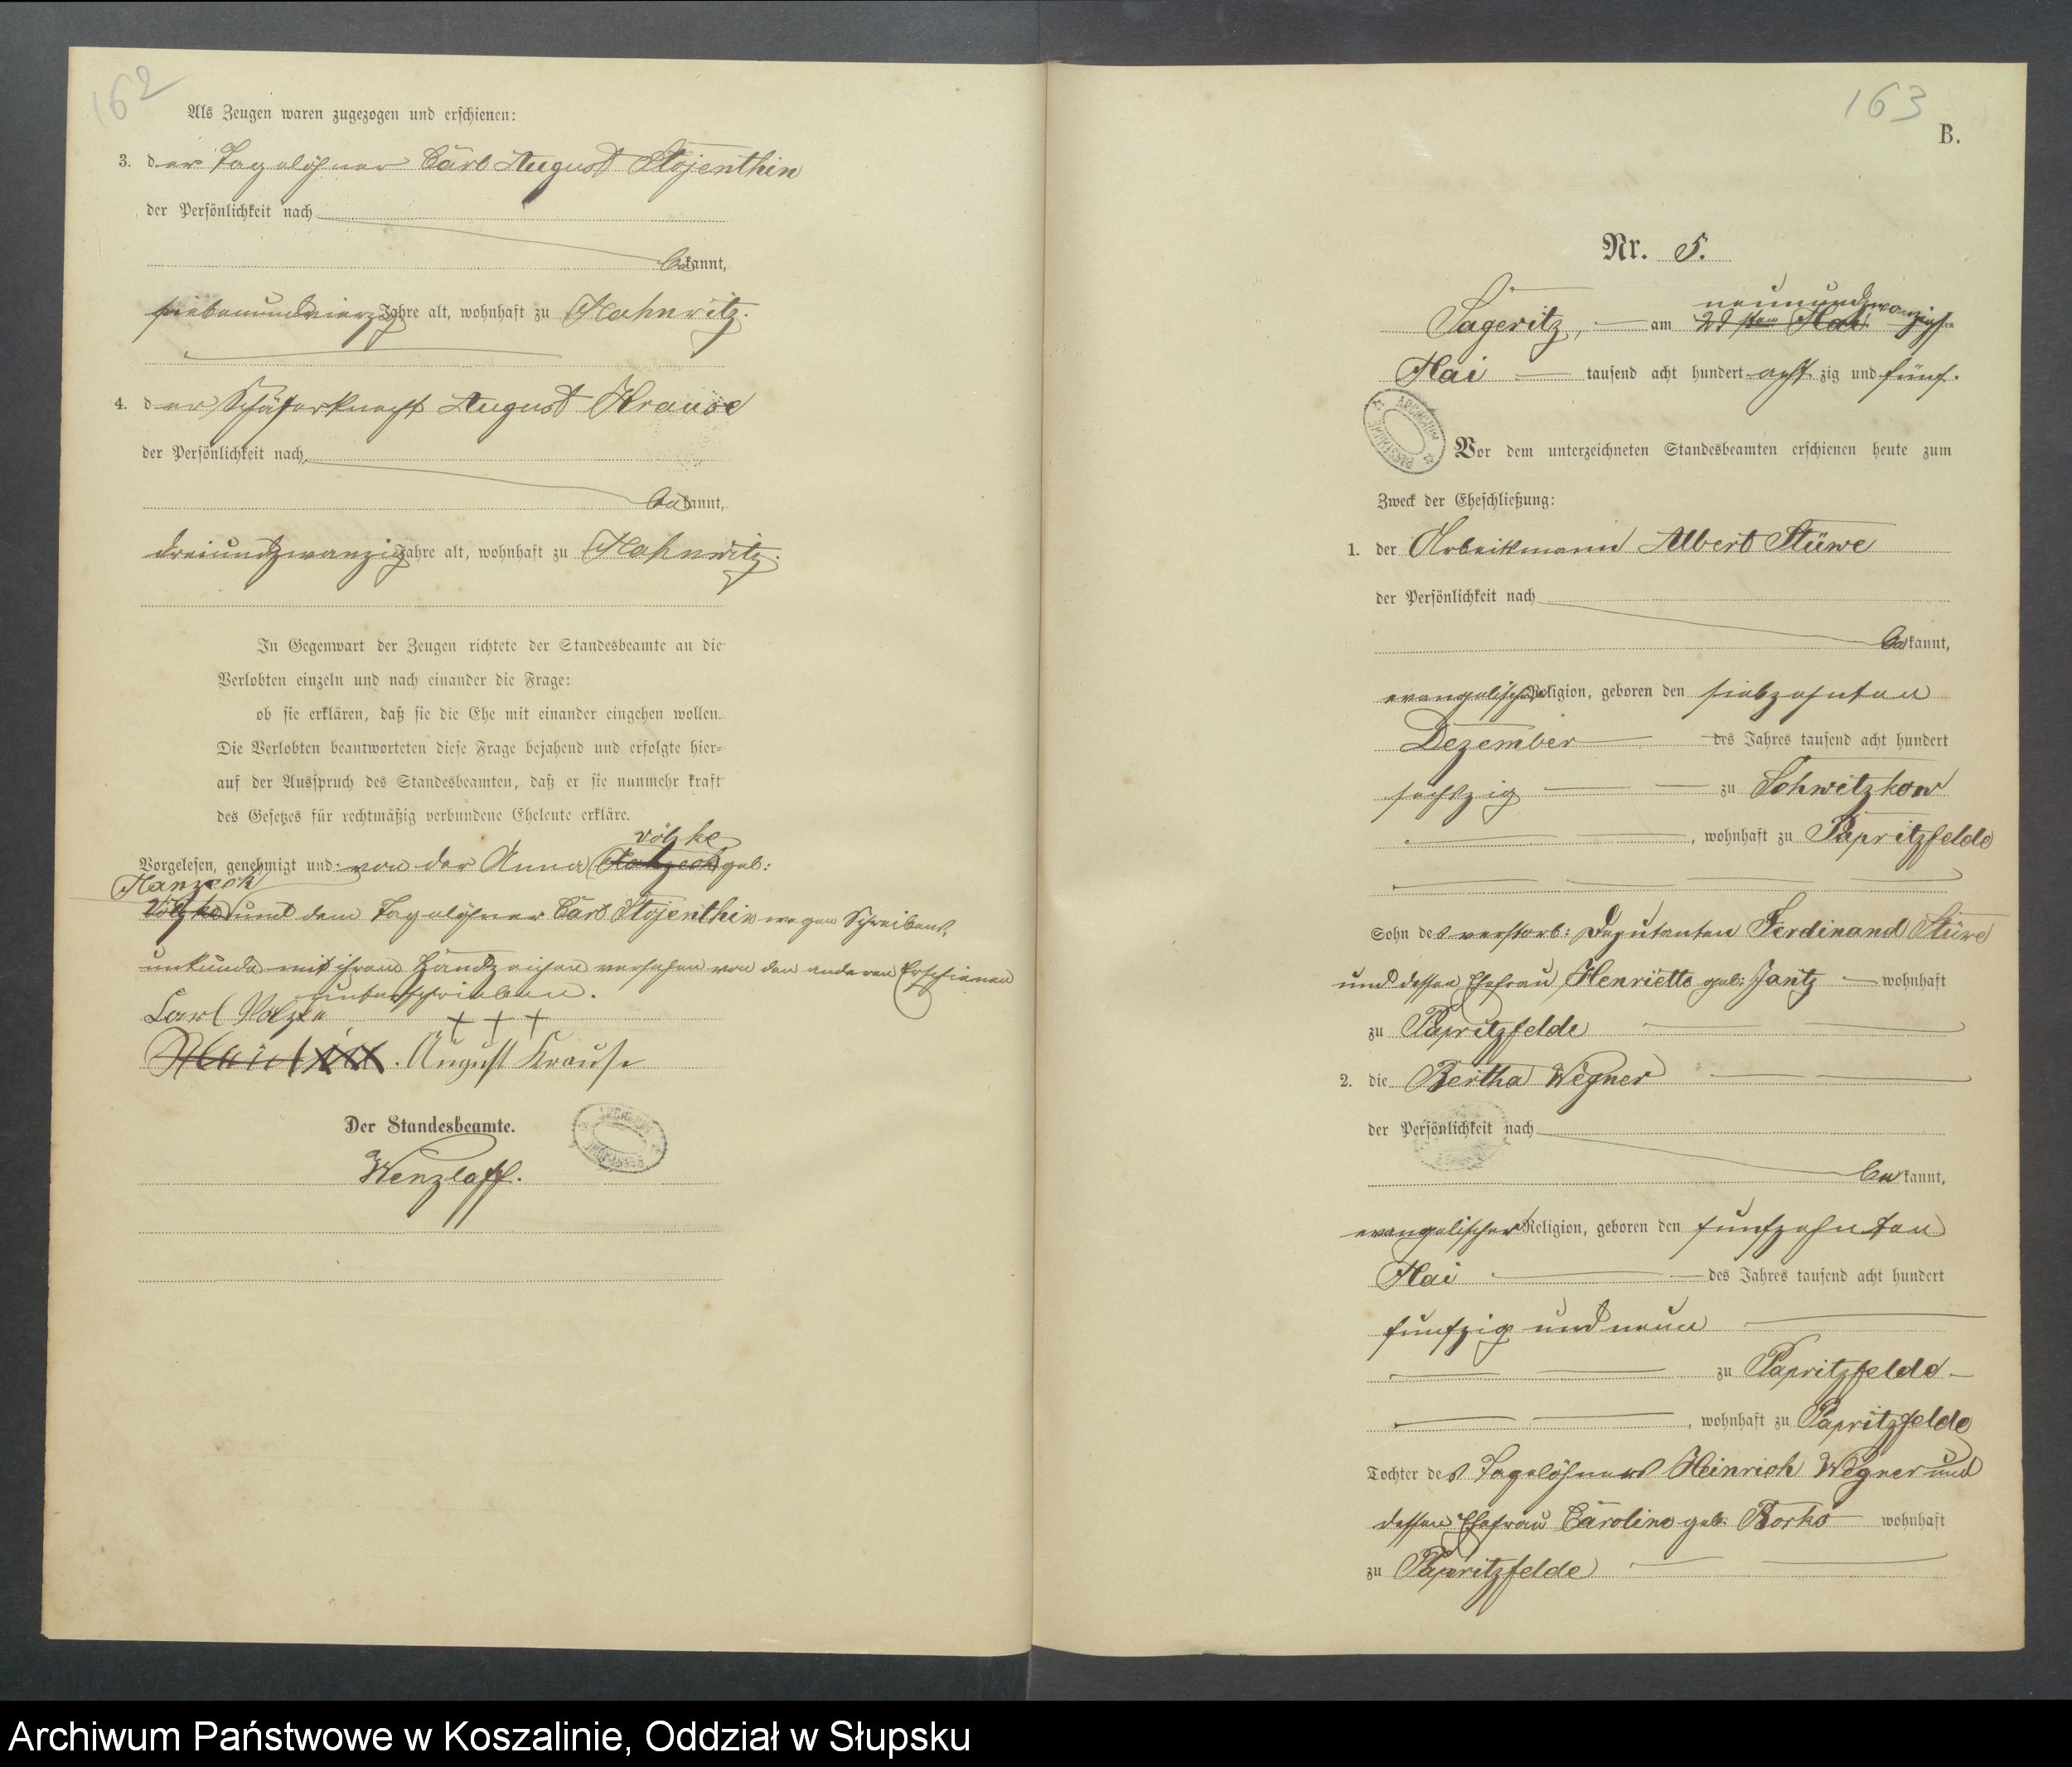 162
Als Zeugen waren zugezogen und erschienen:
3. der Tagelöhner Carl August Stojenthin
der Persönlichkeit nach
bekannt,
siebenundvierzig Jahre alt, wohnhaft zu Mahnwitz.
4. der Schäferknecht August Krause
der Persönlichkeit nach
bekannt,
dreiundzwanzig Jahre alt, wohnhaft zu Mahnwitz.
In Gegenwart der Zeugen richtete der Standesbeamte an die
Verlobten einzeln und nach einander die Frage:
ob sie erklären, daß sie die Ehe mit einander eingehen wollen.
Die Verlobten beantworteten diese Frage bejahend und erfolgte hier-
auf der Ausspruch des Standesbeamten, daß er sie nunmehr kraft
des Gesetzes für rechtmäßig verbundene Eheleute erkläre.
Völzke
Vorgelesen, genehmigt und von der Anna geb:
Völzke und dem Tagelöhner Carl Stojenthin wegen Schreibens-
unkunde mit ihrem Handzeichen versehen von den anderen Erschienen
unterschrieben.
Carl Völzke + + +
August Krause
Der Standesbeamte.
Wenzlaff.
163
B.
Nr. 5.
neunundzwanzigsten
Sageritz, am 29sten Mai
Mai tausend acht hundert acht zig und fünf.
ARCHIWUM PAŃSTWOWE
Vor dem unterzeichneten Standesbeamten erschienen heute zum
Zweck der Eheschließung:
1. der Arbeitsmann Albert Stüwe
der Persönlichkeit nach
bekannt,
evangelischer Religion, geboren den siebzehnten
Dezember des Jahres tausend acht hundert
sechszig zu Schwetzkow
, wohnhaft zu Papritzfelde
Sohn des verstorb: Deputanten Ferdinand Stüwe
und dessen Ehefrau Henriette geb: Jantz wohnhaft
zu Papritzfelde
2. die Bertha Wegner
der Persönlichkeit nach
bekannt,
evangelischer Religion, geboren den funfzehnten
Mai des Jahres tausend acht hundert
funfzig und neun
zu Papritzfelde
, wohnhaft zu Papritzfelde
Tochter des Tagelöhners Heinrich Wegner und
dessen Ehefrau Caroline geb: Borko wohnhaft
zu Papritzfelde
Archiwum Państwowe w Koszalinie, Oddział w Słupsku